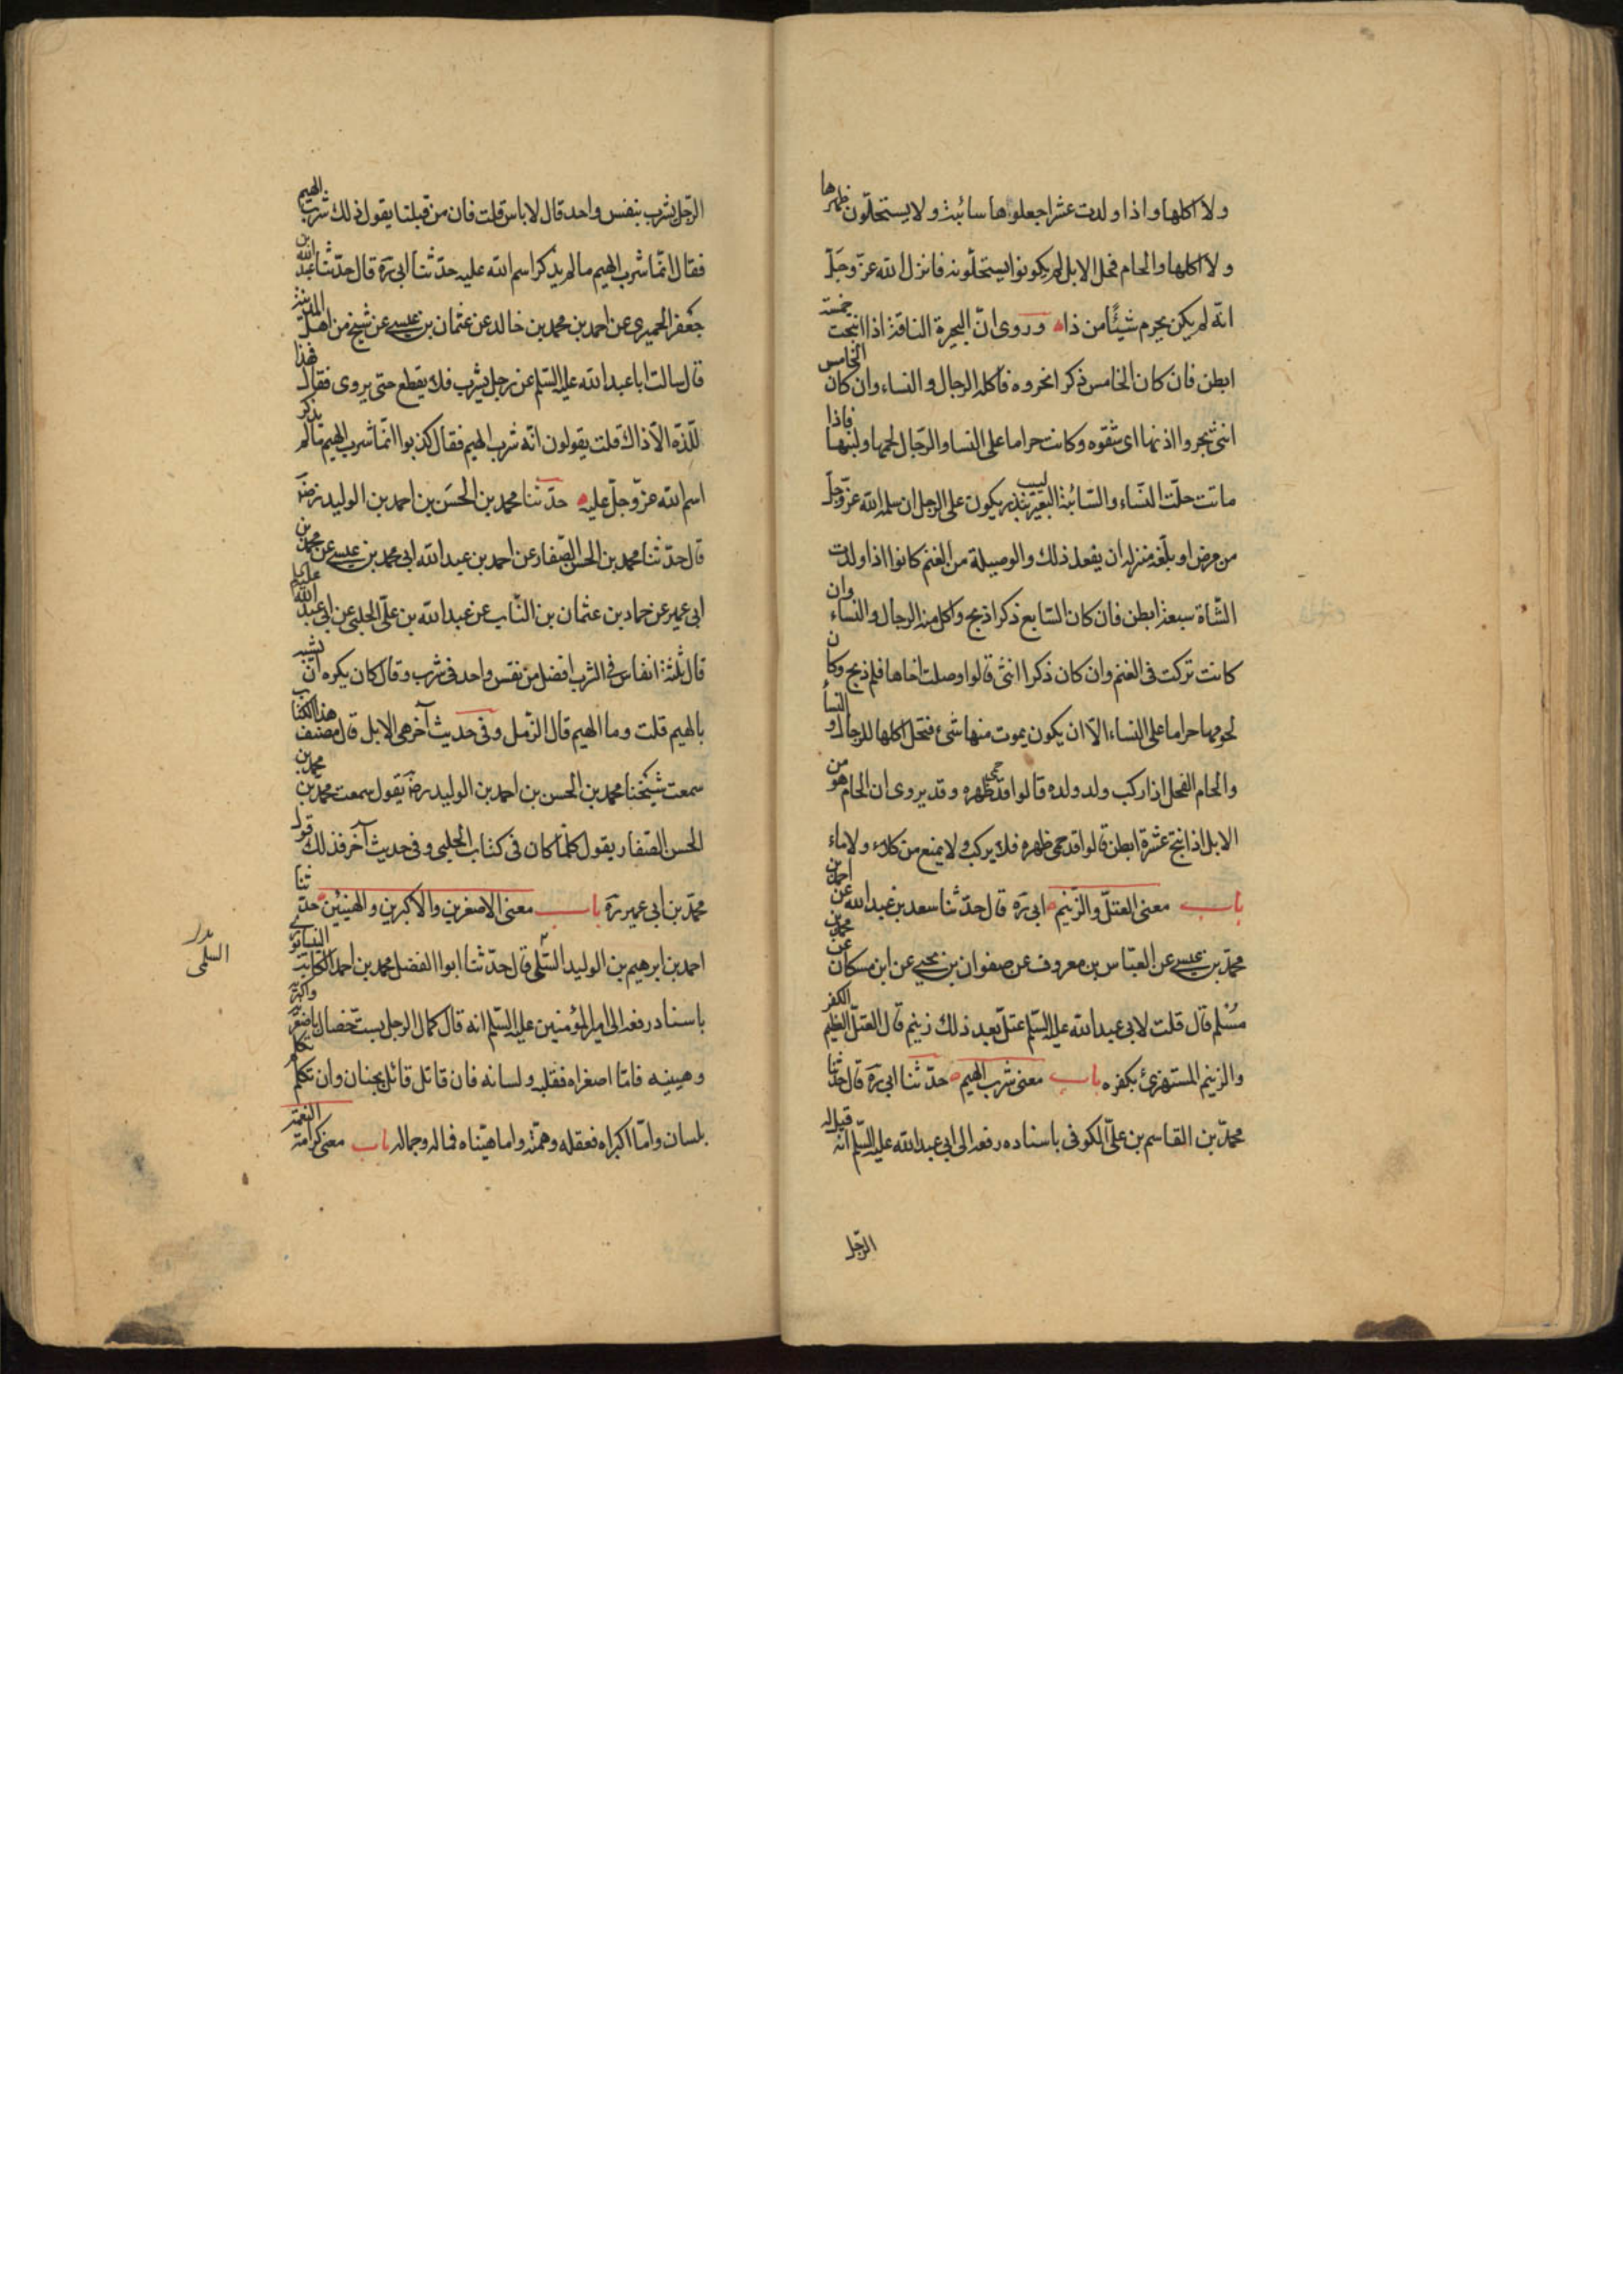 ولا اكلها واذا ولدت عشرا جعلوها سائبة ولا يستحلّون ظهرها
ولا اكلها والحام فحل الابل لم يكونوا يستحلّونه فانزل الله عزّ وجلّ
انّه لم يكن يحرم شيئًا من ذا وروى انّ البحرة الناقة اذا انتجت خمسة
ابطن فان كان الخامس ذكرا نحروه فاكله الرجال والنساء وان كان الخامس
انثى بحروا اذنها اى شقوه وكانت حراما على النسا والرّجال لحمها ولبنها فاذا
ماتت حلّت النّساء والسّائبة البعير يسيب بنذر يكون على الرجل ان سلمه الله عزّ وجلّ
من مرض او بلّغه منزله ان يفعل ذلك والوصيلة من الغنم كانوا اذا ولدت
الشّاة سبعة ابطن فان كان السّابع ذكرا ذبح واكل منه الرجال والنساء وان
كانت تركت فى الغنم وان كان ذكرا انثى قالوا وصلت اخاها فلم ذبح وكان
لحومها حراما على النساء الّا ان يكون يموت منها شىء فتحل اكلها للرجال والنسأ
والحام الفحل اذا ركب ولد ولده قالوا قد حمى ظهره وقد يروى ان الحام هو من
الابل اذا نتج عشرة ابطن قالوا قد حمى ظهره فلا يركب ولا يمنع من كلاء ولا ماء
باب معنى العتلّ والزّنيم ابى رَه قال حدّثنا سعد بن عبد الله عن احمد بن
محمّد بن عيسى عن العبّاس بن معروف عن صفوان بن يحيى عن ابن مسكان عن محمد بن
مُسْلم قال قلت لابى عبد الله عليه السّلم عتلّ بعد ذلك زنيم قال العتلّ العظيم الكفر
والزنيم المستهزئ بكفره باب معنى شرب الهيم حدّثنا ابى رَه قال حدّثنا
محمّد بن القاسم بن علىّ الكوفى باسناده رفعه الى ابى عبد الله عليه السّلم انّه قيل له
الرّجل
الرّجل يشرب بنفس واحد قال لا باس قلت فان من قبلنا يقول ذلك شرب الهيم
فقال انّما شرب الهيم ما لم يذكر اسم الله عليه حدّثنا ابى رَه قال حدّثنا عبد الله بن
جعفر الحميرى عن احمد بن محمد بن خالد عن عثمان بن عيسى عن شيخ من اهل المدينة
قال سالت ابا عبد الله عليه السّلم عن رجل يشرب فلا يقطع حتى يروى فقال فهذا
للّذّه الّا ذاك قلت يقولون انّه شرب الهيم فقال كذبوا انّما شرب الهيم ما لم يذكر
اسم الله عزّ وجلّ عليه حدّثنا محمد بن الحسَن بن احمد بن الوليد رضَه
قال حدّثنا محمد بن الحسن الصّفار عن احمد بن عبد الله ابى محمد بن عيسى عن محمد بن
ابى عمير عن حماد بن عثمان بن النّاب عن عبد الله بن علىّ الحلبى عن ابى عبد الله عليلم
قال ثلثة انفاس فى الشرب افضل من نفس واحد فى شرب وقال كان يكره ان يشبه
بالهيم قلت وما الهيم قال الرّمل وفى حديث آخر هى الابل قال مصنف هذا الكتاب
سمعت شيخنا محمد بن الحسن بن احمد بن الوليد رضَه يقول سمعت محمّد بن
الحسن الصّفار يقول كلّما كان فى كتاب الحلبى وفى حديث آخر فذلك قول
محمّد بن ابى عمير رَه باب معنى الاصغرين والاكبرين والهينين حدّثنا
احمد بن ابرهيم بن الوليد السّلمى قال حدّثنا ابوا الفضل محمد بن احمد الكاتب النيسابورى
باسناد رفعه الى امير المؤمنين عليه السّلم انه قال كمال الرجل بستّ خصال باصغريه واكبريه
وهيينيه فامّا اصغراه فقلبه ولسانه فان قاتل قاتل بجنان وان تكلم تكلم
بلسان وامّا اكبراه فعقله وهمّته واما هيّناه فماله وجماله باب معنى كرامة النعمة
السلمى